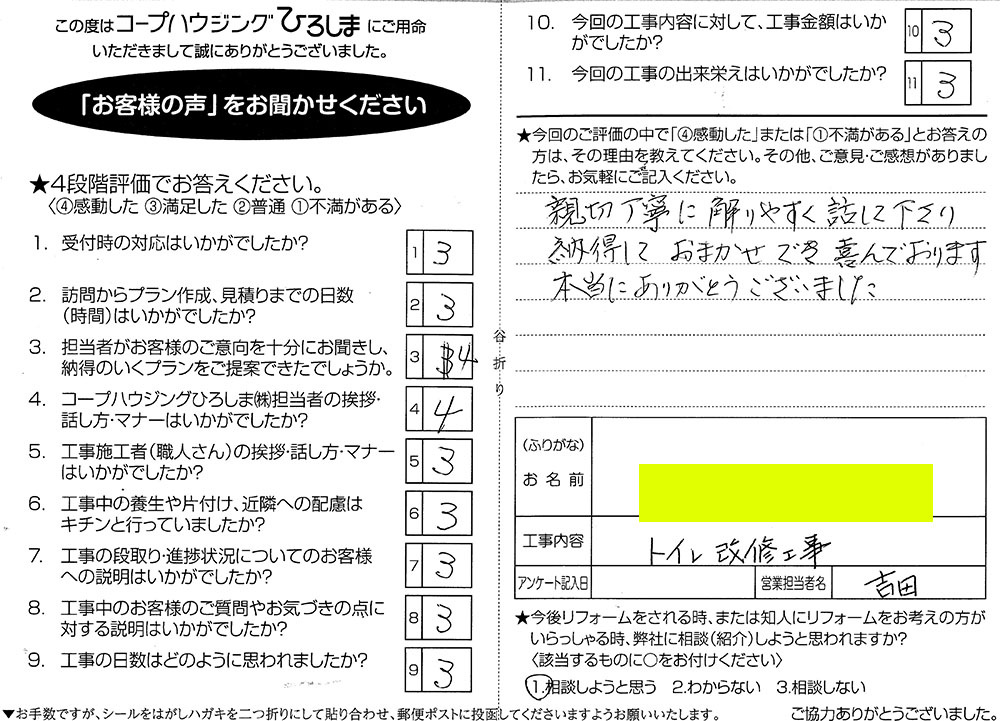 この度はコープハウジングひろしまにご用命
いただきまして誠にありがとうございました。
「お客様の声」をお聞かせください
★4段階評価でお答えください。
〈④感動した ③満足した ②普通 ①不満がある〉
1. 受付時の対応はいかがでしたか?
1 3
2. 訪問からプラン作成、見積りまでの日数
(時間)はいかがでしたか?
2 3
3. 担当者がお客様のご意向を十分にお聞きし、
納得のいくプランをご提案できたでしょうか。
3 4
4. コープハウジングひろしま㈱担当者の挨拶・
話し方・マナーはいかがでしたか?
4 4
5. 工事施工者(職人さん)の挨拶・話し方・マナー
はいかがでしたか?
5 3
6. 工事中の養生や片付け、近隣への配慮は
キチンと行っていましたか?
6 3
7. 工事の段取り・進捗状況についてのお客様
への説明はいかがでしたか?
7 3
8. 工事中のお客様のご質問やお気づきの点に
対する説明はいかがでしたか?
8 3
9. 工事の日数はどのように思われましたか?
9 3
▼お手数ですが、シールをはがしハガキを二つ折りにして貼り合わせ、郵便ポストに投函してくださいますようお願いいたします。
谷折り
10. 今回の工事内容に対して、工事金額はいか
がでしたか?
10 3
11. 今回の工事の出来栄えはいかがでしたか?
11 3
★今回のご評価の中で「④感動した」または「①不満がある」とお答えの
方は、その理由を教えてください。その他、ご意見・ご感想がありまし
たら、お気軽にご記入ください。
親切丁寧に解りやすく話して下さり
納得して おまかせ でき 喜んでおります
本当にありがとうございました
(ふりがな)
お名前
工事内容 トイレ改修工事
アンケート記入日 営業担当者名 吉田
★今後リフォームをされる時、または知人にリフォームをお考えの方が
いらっしゃる時、弊社に相談(紹介)しようと思われますか?
〈該当するものに○をお付けください〉
1.相談しようと思う 2.わからない 3.相談しない
ご協力ありがとうございました。